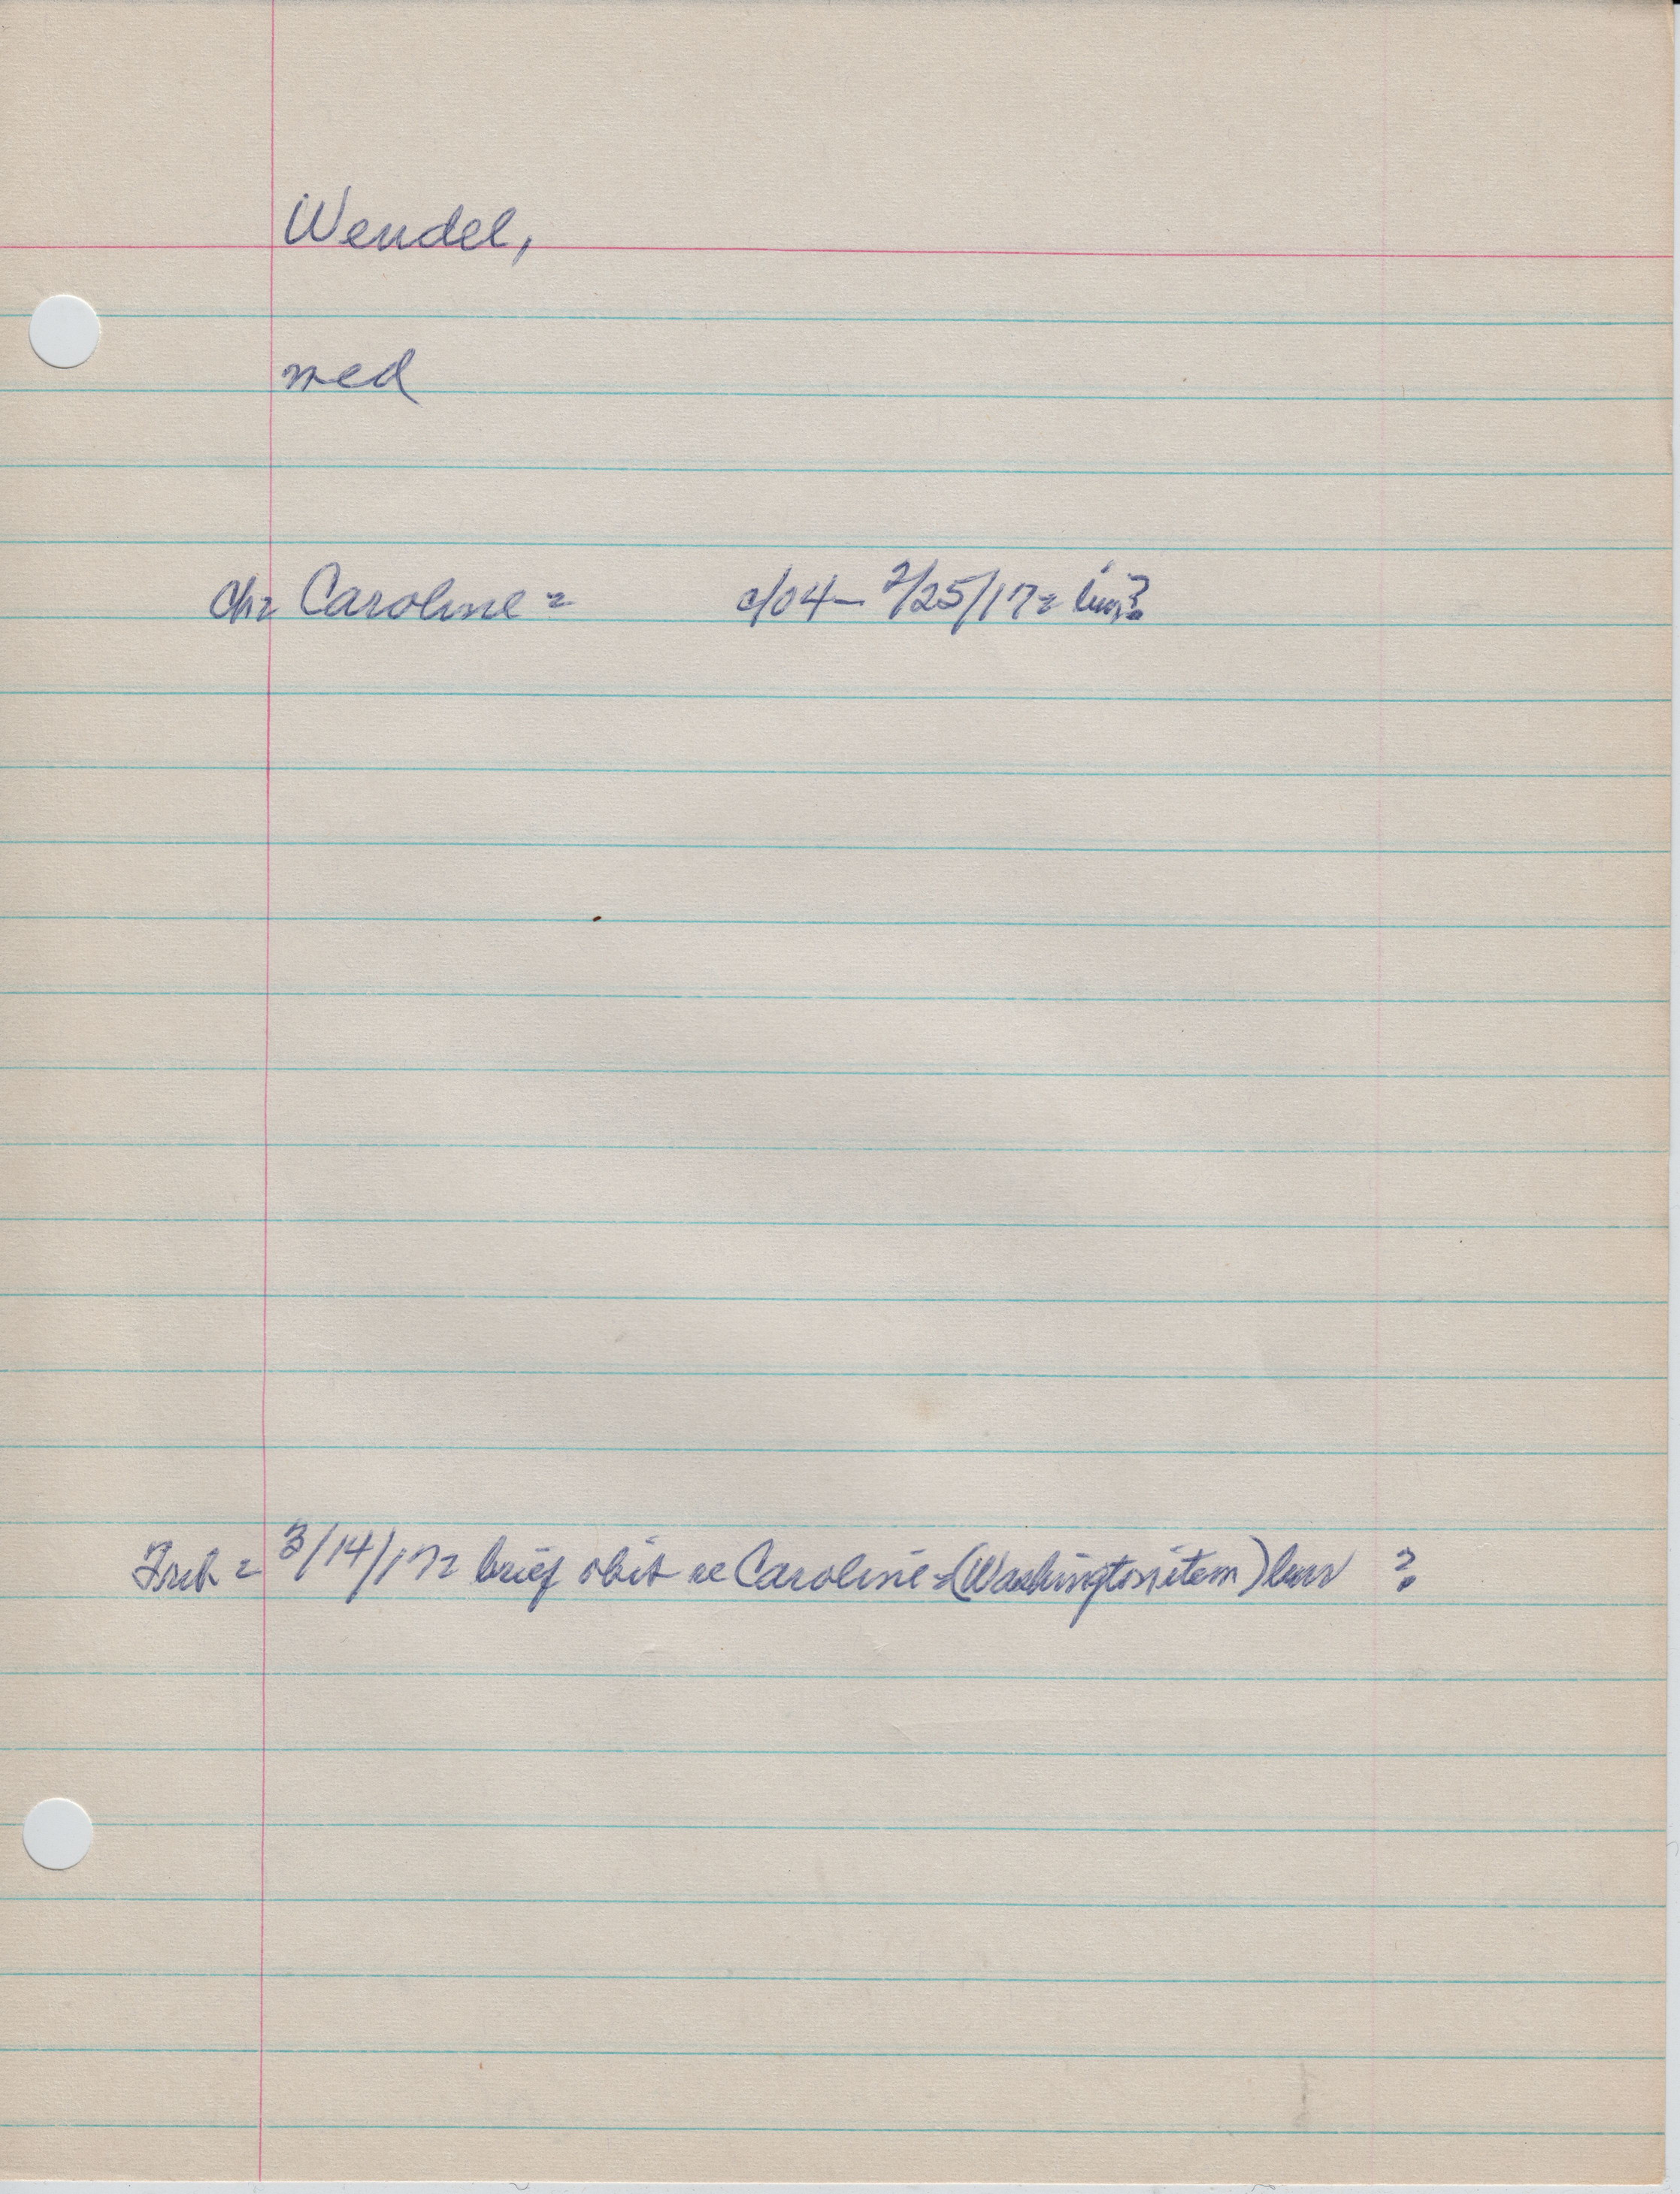 Wendel,
med
ch= Caroline = c/04 – 2/25/17 = bur?
= 3/14/17 = brief obit re Caroline = (Washington item) bur ?